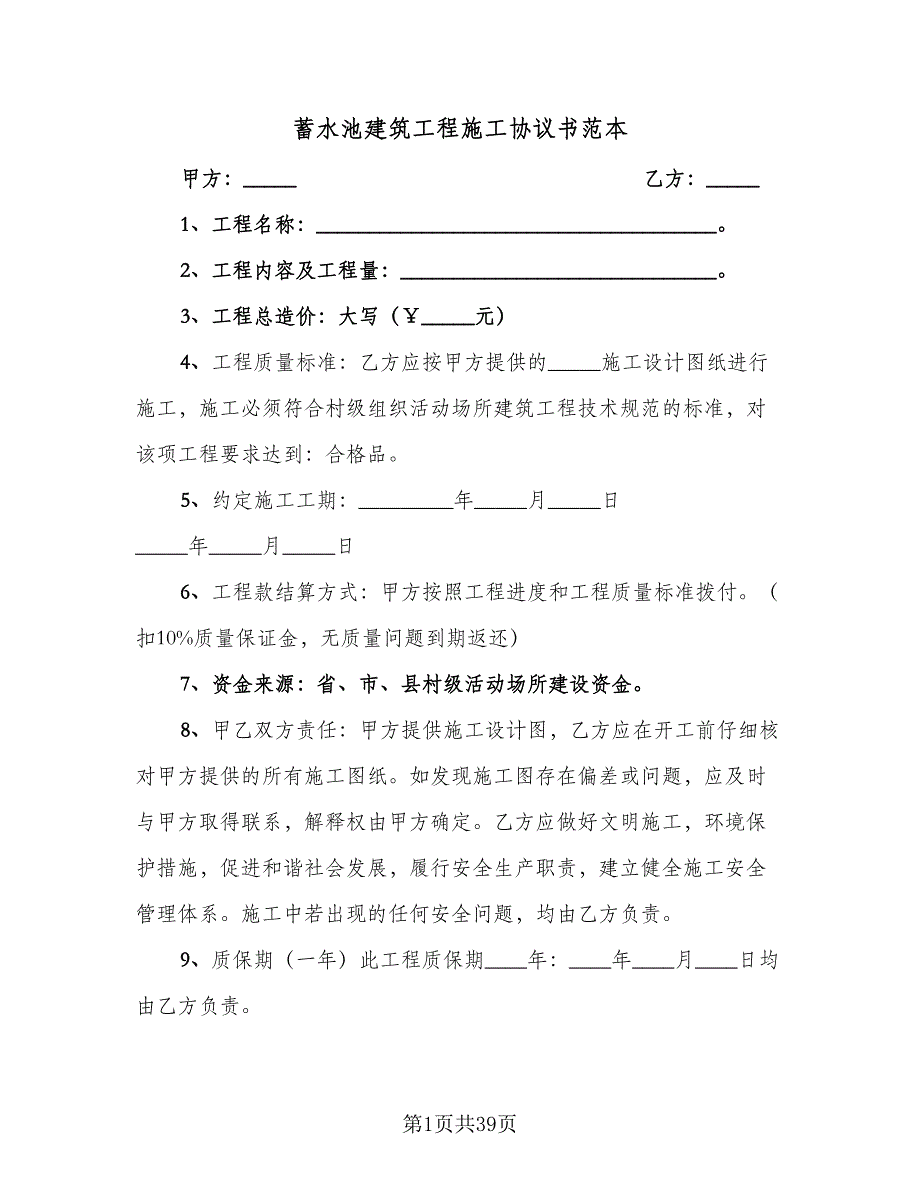 蓄水池建筑工程施工协议书范本
甲方：_____ 乙方：_____
1、工程名称：______________________________________。
2、工程内容及工程量：______________________________。
3、工程总造价：大写（￥_____元）
4、工程质量标准：乙方应按甲方提供的_____施工设计图纸进行
施工，施工必须符合村级组织活动场所建筑工程技术规范的标准，对
该项工程要求达到：合格品。
5、约定施工工期：_________年_____月_____日
_____年_____月_____日
6、工程款结算方式：甲方按照工程进度和工程质量标准拨付。（
扣10%质量保证金，无质量问题到期返还）
7、资金来源：省、市、县村级活动场所建设资金。
8、甲乙双方责任：甲方提供施工设计图，乙方应在开工前仔细核
对甲方提供的所有施工图纸。如发现施工图存在偏差或问题，应及时
与甲方取得联系，解释权由甲方确定。乙方应做好文明施工，环境保
护措施，促进和谐社会发展，履行安全生产职责，建立健全施工安全
管理体系。施工中若出现的任何安全问题，均由乙方负责。
9、质保期（一年）此工程质保期____年：____年____月____日均
由乙方负责。
第1页共39页